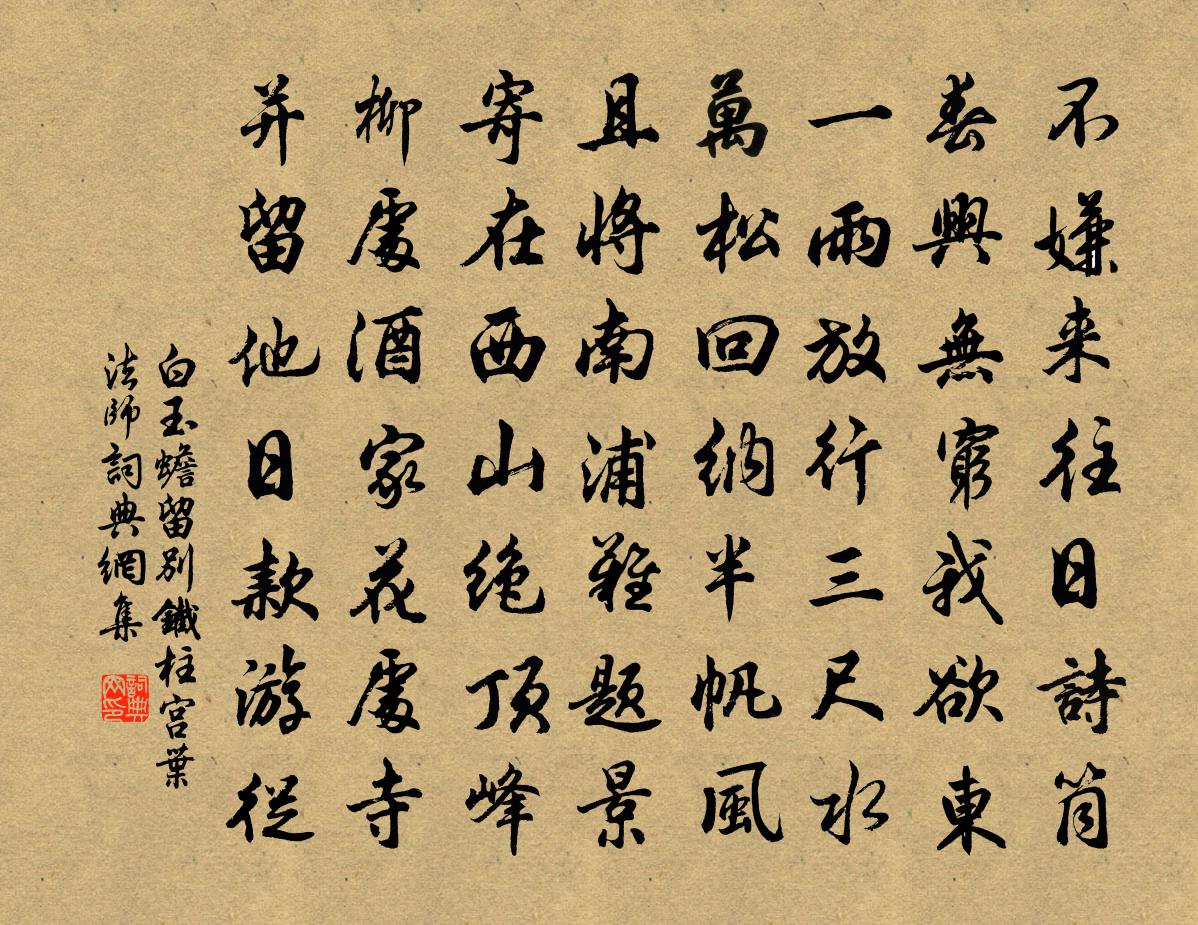 不嫌来往日詩筒
春興無窮我欲東
一雨放行三尺水
萬松回納半帆風
且將南浦難題景
寄在西山绝頂峰
柳處酒家花處寺
并留他日款游從
白玉蟾留別鐵柱宮葉
法師詞典網集
詞典
网印